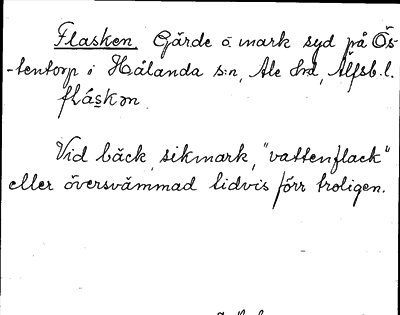 Flasken. Gärde o. mark syd på Ös-
-tentorp i Hålanda s:n, Ale hd, Älfsb. l.
flás̲kən.
Vid bäck, sikmark, "vattenflack"
eller översvämmad tidvis förr troligen.